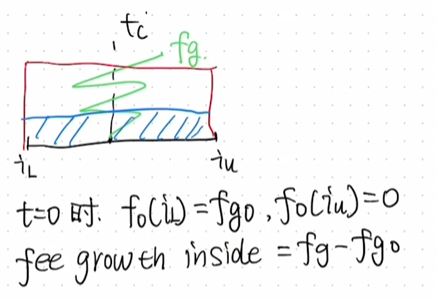 tc
fg.
iL iu
t=0 时. fo(iL)=fgo, fo(iu)=0
fee growth inside = fg-fgo